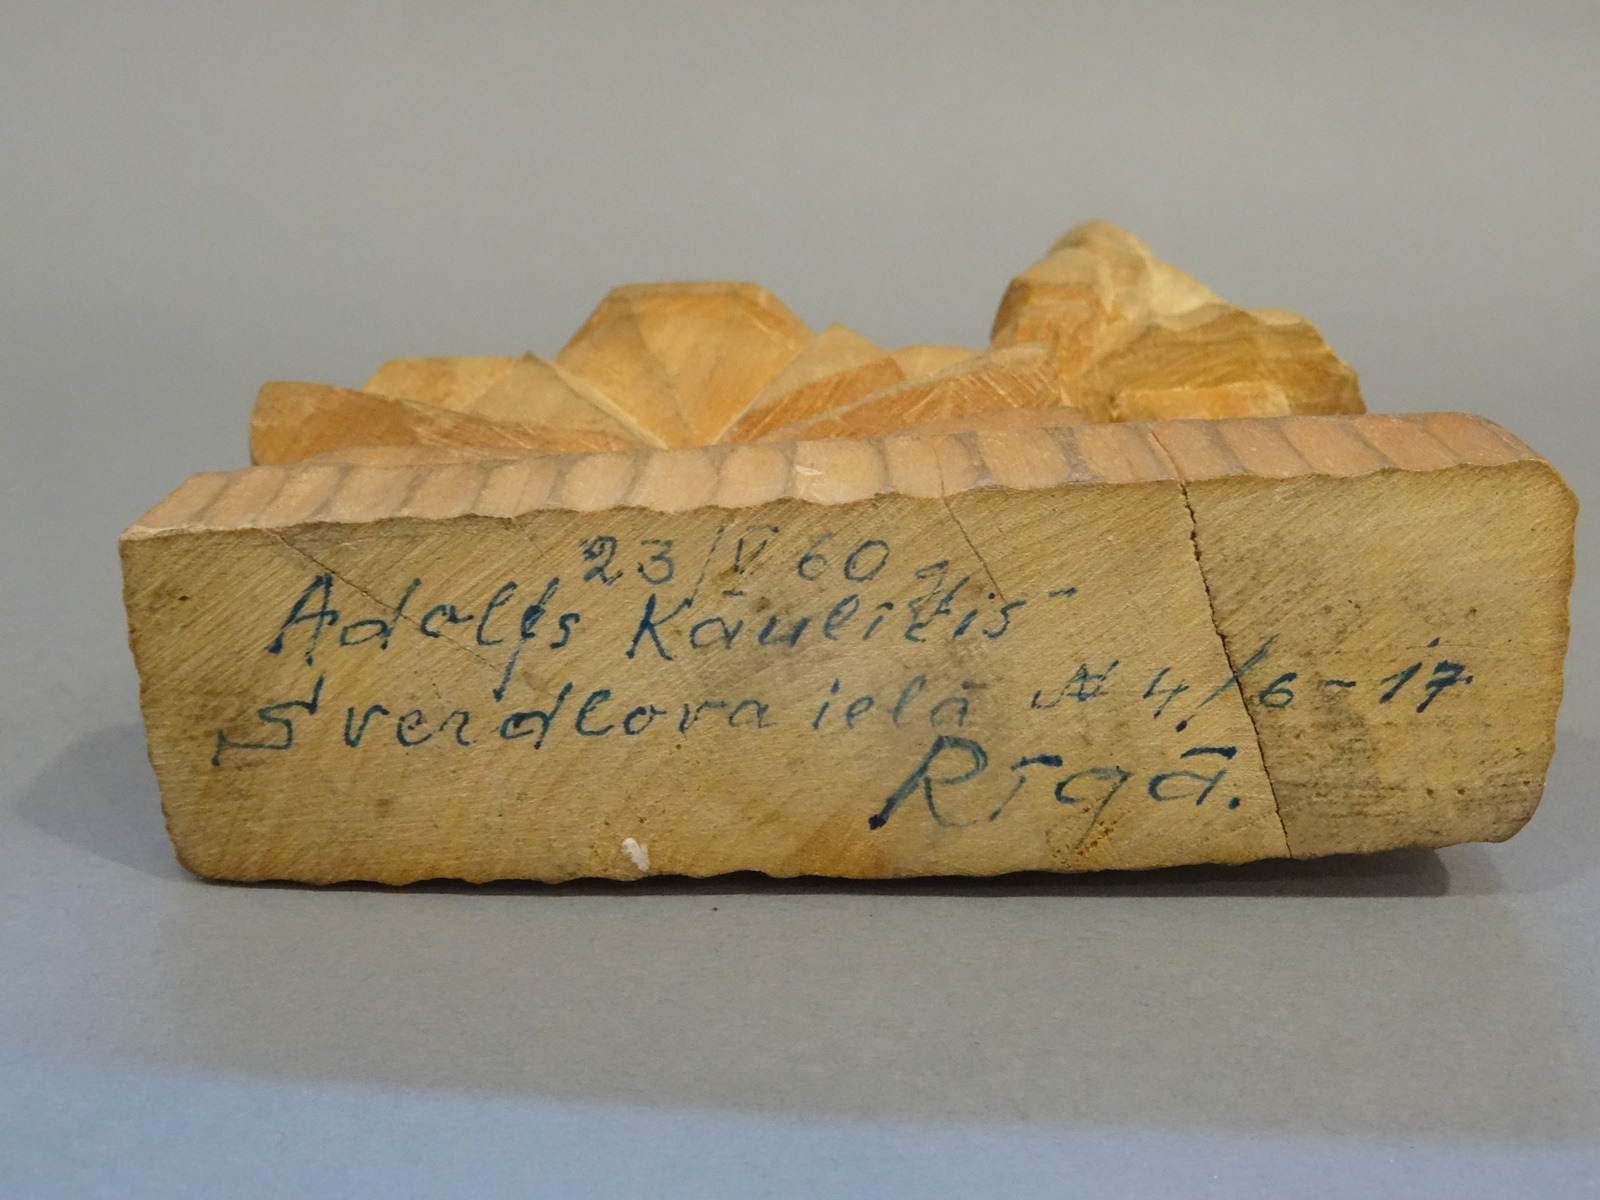 23/V 60
Adolfs Kāuližis
Sverdlova ielā № 4/6-17
Rīgā.